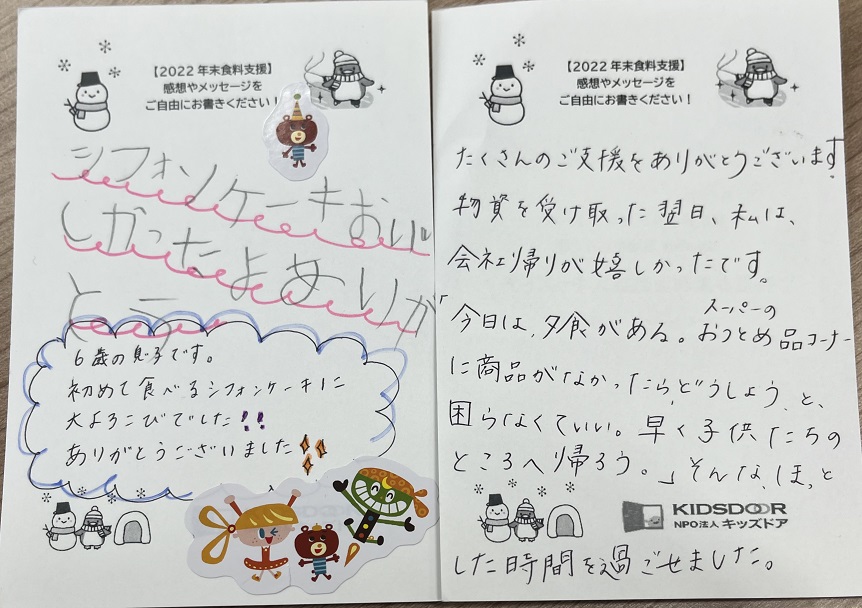 【2022年末食料支援】
感想やメッセージを
ご自由にお書きください！
シフォンケーキおい
しかったよありが
とう
6歳の息子です。
初めて食べるシフォンケーキに
大よろこびでした!!
ありがとうございました
【2022年末食料支援】
感想やメッセージを
ご自由にお書きください！
たくさんのご支援をありがとうございます。
物資を受け取った翌日、私は、
会社帰りが嬉しかったです。
「今日は、夕食がある。スーパーのおつとめ品コーナー
に商品がなかったら、どうしよう、と、
困らなくていい。早く子供たちの
ところへ帰ろう。」そんな、ほっと
した時間を過ごせました。
KIDSDOOR
NPO法人 キッズドア